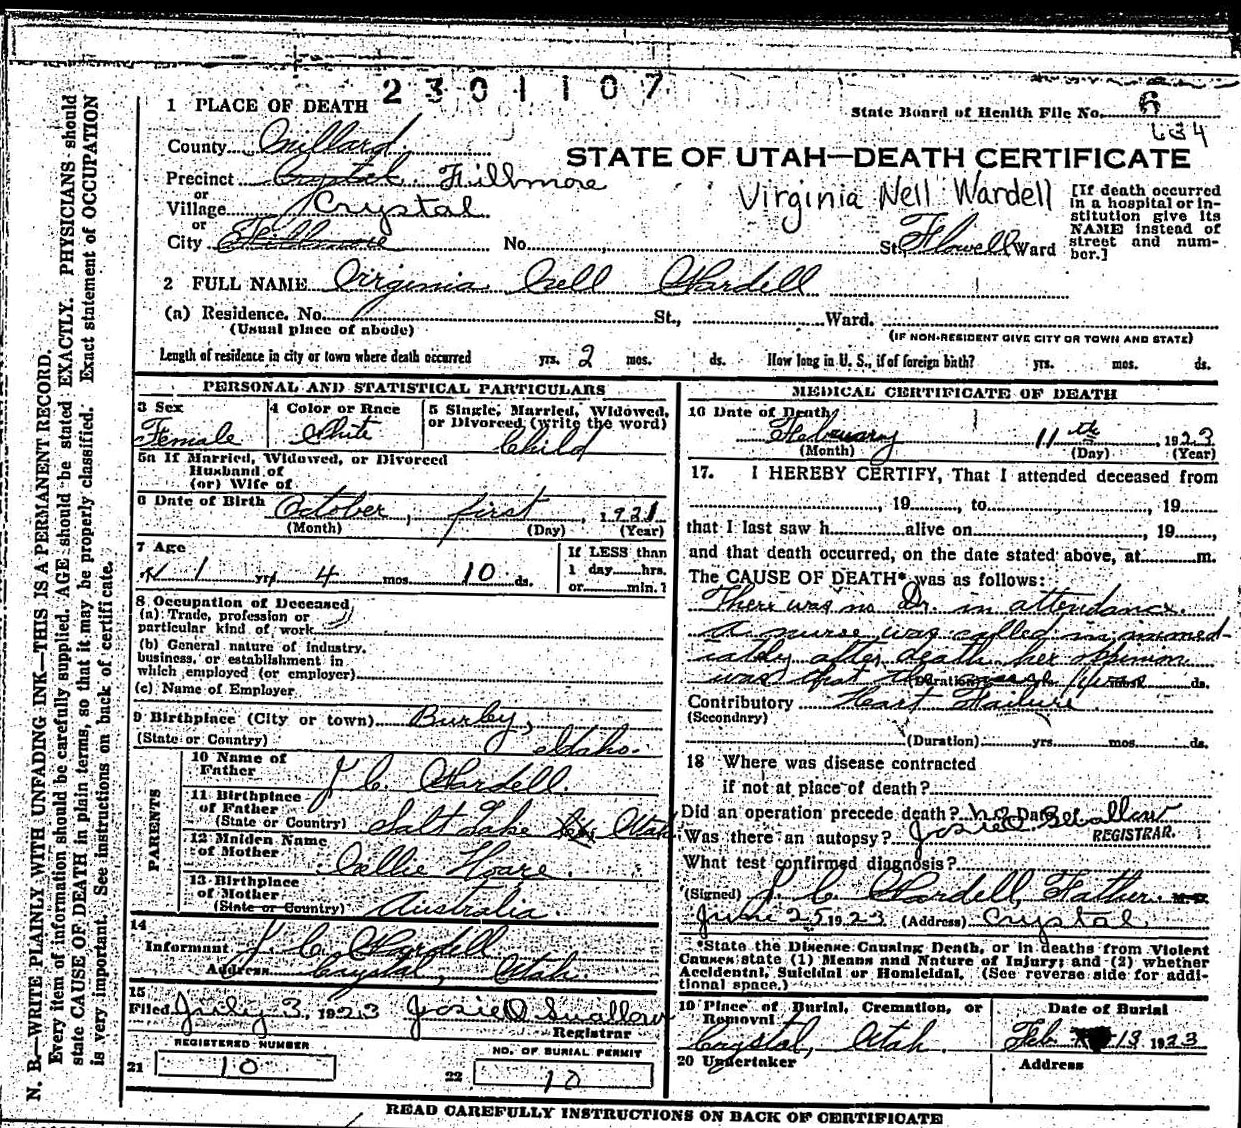 2301107
1 PLACE OF DEATH
State Board of Health File No. 6
634
County Millard
STATE OF UTAH—DEATH CERTIFICATE
Precinct Crystal Fillmore
Virginia Nell Wardell
[If death occurred in a hospital or institution give its NAME instead of street and number.]
or
Village Crystal
or
City Fillmore No. St. Flowell Ward
2 FULL NAME Virginia Nell Wardell
(a) Residence. No. St., Ward.
(Usual place of abode)
(IF NON-RESIDENT GIVE CITY OR TOWN AND STATE)
Length of residence in city or town where death occurred yrs. 2 mos. ds. How long in U. S., if of foreign birth? yrs. mos. ds.
PERSONAL AND STATISTICAL PARTICULARS
3 Sex
Female
4 Color or Race
White
5 Single, Married, Widowed,
or Divorced (write the word)
Child
5a If Married, Widowed, or Divorced
Husband of
(or) Wife of
6 Date of Birth October, first, 1921
(Month) (Day) (Year)
7 Age
1 yrs 4 mos. 10 ds.
If LESS than
1 day hrs.
or min.?
8 Occupation of Deceased
(a) Trade, profession or
particular kind of work
(b) General nature of industry,
business, or establishment in
which employed (or employer)
(c) Name of Employer
9 Birthplace (City or town) Burley,
(State or Country) Idaho.
PARENTS
10 Name of
Father J. C. Wardell.
11 Birthplace
of Father
(State or Country) Salt Lake City Utah
12 Maiden Name
of Mother Callie Hoare.
13 Birthplace
of Mother
(State or Country) Australia.
14
Informant J. C. Wardell
Address Crystal, Utah.
15
Filed July 3, 1923 Josie O Swallow
Registrar
REGISTERED NUMBER
21 10
NO. OF BURIAL PERMIT
22 10
MEDICAL CERTIFICATE OF DEATH
16 Date of Death
February 11th 1923
(Month) (Day) (Year)
17. I HEREBY CERTIFY, That I attended deceased from
, 19 , to , 19
that I last saw h alive on , 19 ,
and that death occurred, on the date stated above, at m.
The CAUSE OF DEATH* was as follows:
There was no Dr. in attendance.
A nurse was called in immed-
iately after death her oppinion
was that the cause was
(Duration) ds.
Contributory Heart Failure
(Secondary)
(Duration) yrs. mos. ds.
18 Where was disease contracted
if not at place of death?
Did an operation precede death? No Date
Was there an autopsy? Josie O Swallow
REGISTRAR.
What test confirmed diagnosis?
(Signed) J. C. Wardell, Father. M. D.
June 25, 1923 (Address) Crystal
*State the Disease Causing Death, or in deaths from Violent
Causes state (1) Means and Nature of Injury; and (2) whether
Accidental, Suicidal or Homicidal. (See reverse side for addi-
tional space.)
19 Place of Burial, Cremation, or
Removal
Crystal, Utah.
Date of Burial
Feb. 13 1923
20 Undertaker
Address
READ CAREFULLY INSTRUCTIONS ON BACK OF CERTIFICATE
N. B.—WRITE PLAINLY WITH UNFADING INK—THIS IS A PERMANENT RECORD.
Every item of information should be carefully supplied. AGE should be stated EXACTLY. PHYSICIANS should
state CAUSE OF DEATH in plain terms, so that it may be properly classified. Exact statement of OCCUPATION
is very important. See instructions on back of certificate.